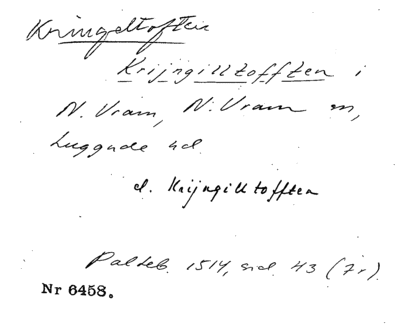 Kringeltoften
Krijngilltofften i
N. Vram, N. Vram sn,
Luggude hd
d. Krijngilltofften
Palteb. 1514, sid. 43 (7r).
Nr 6458.